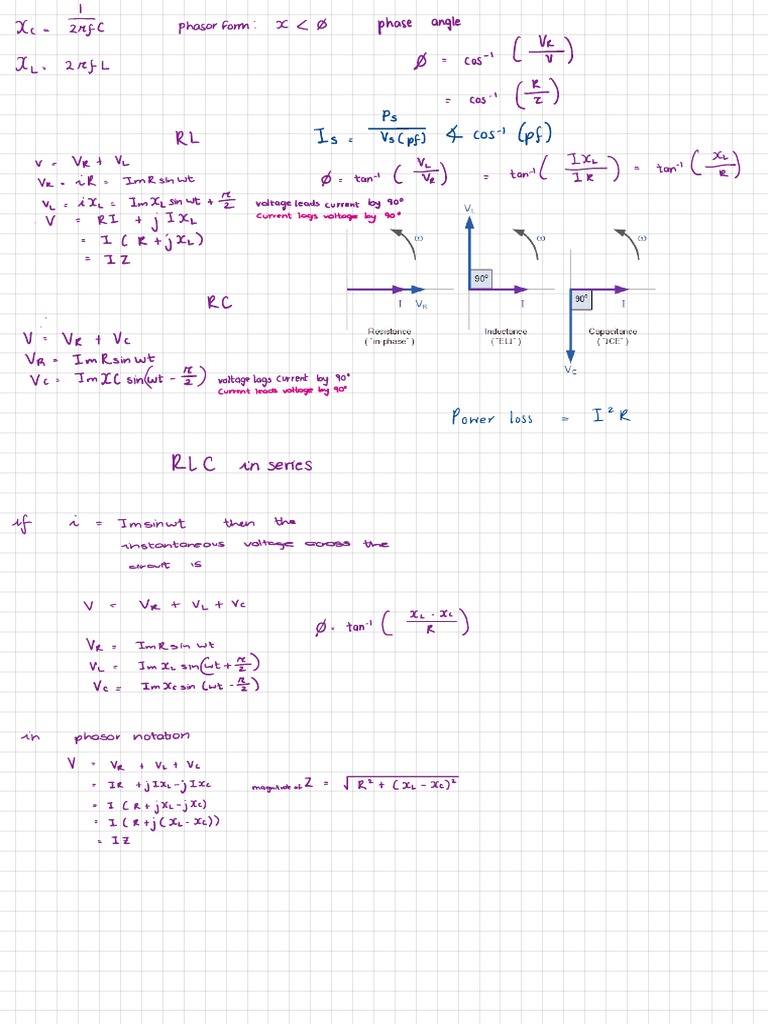 Xc = 1/2πfC
phasor form: x < ø
phase angle
XL = 2πfL
ø = cos⁻¹ (VR/V)
= cos⁻¹ (R/Z)
Is = Ps/Vs(pf) ∡ cos⁻¹ (pf)
RL
V = VR + VL
VR = iR = ImR sin wt
VL = iXL = ImXL sin wt + π/2 voltage leads current by 90°
current lags voltage by 90°
V = RI + jIXL
= I (R + jXL)
= IZ
ø = tan⁻¹ (VL/VR) = tan⁻¹ (IXL/IR) = tan⁻¹ (XL/R)
VL
ω ω ω
90° 90°
I VR I I
Resistance Inductance Capacitance
("in-phase") ("ELI") ("ICE")
VC
RC
V = VR + VC
VR = ImR sin wt
VC = ImXC sin(wt - π/2) voltage lags current by 90°
current leads voltage by 90°
Power loss = I²R
RLC in series
if i = Im sin wt then the
instantaneous voltage across the
circuit is
V = VR + VL + VC
ø = tan⁻¹ (XL - XC/R)
VR = ImR sin wt
VL = ImXL sin(wt + π/2)
VC = ImXC sin (wt - π/2)
in phasor notation
V = VR + VL + VC
= IR + jIXL - jIXC
magnitude of Z = √R² + (XL - XC)²
= I (R + jXL - jXC)
= I (R + j(XL - XC))
= IZ